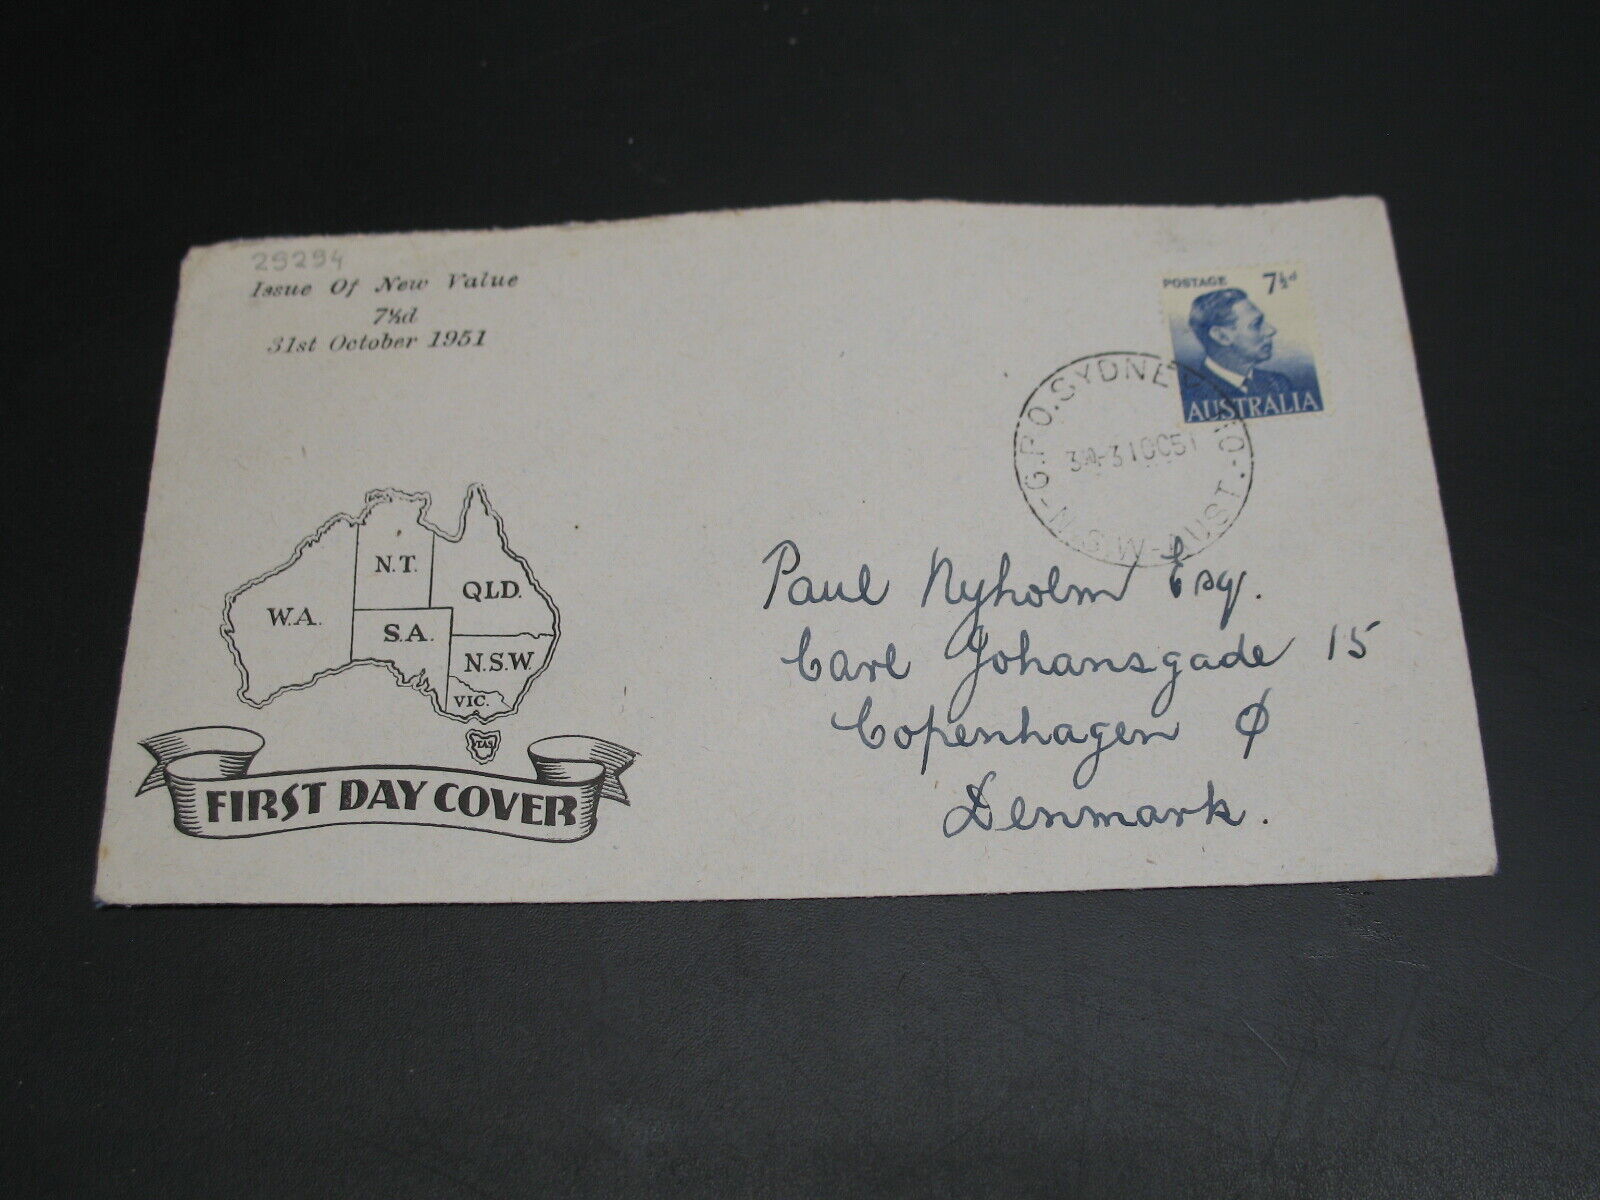 29294
Issue Of New Value
7½d
31st October 1951
POSTAGE 7½d
AUSTRALIA
G.P.O. SYDNEY
31OC51
N.S.W-AUST.
Paul Nyholm Esq.
Carl Johansgade 15
Copenhagen Ø
Denmark.
W.A.
N.T.
QLD.
S.A.
N.S.W.
VIC.
TAS.
FIRST DAY COVER